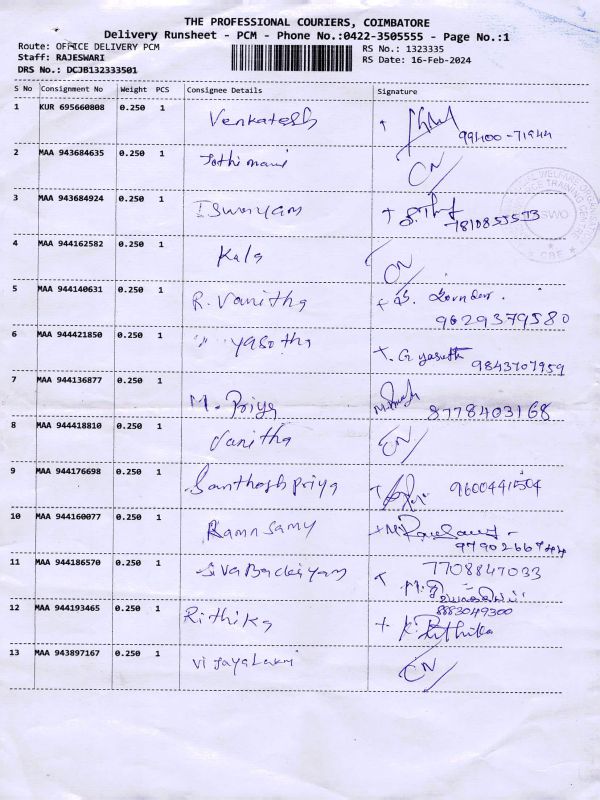 THE PROFESSIONAL COURIERS, COIMBATORE
Delivery Runsheet - PCM - Phone No.:0422-3505555 - Page No.:1
Route: OFFICE DELIVERY PCM
Staff: RAJESWARI
DRS No.: DCJB132333501
RS No.: 1323335
RS Date: 16-Feb-2024
S No Consignment No Weight PCS Consignee Details Signature
1 KUR 695660808 0.250 1 Venkatesh
99400-71944
2 MAA 943684635 0.250 1 Jothimani CN
3 MAA 943684924 0.250 1 Iswaryam
7810855573
4 MAA 944162582 0.250 1 Kala CN
5 MAA 944140631 0.250 1 R. Vanitha
9629379580
6 MAA 944421850 0.250 1 " yasotha G yasoth
9843707959
7 MAA 944136877 0.250 1 M. Priya
8778403168
8 MAA 944418810 0.250 1 Vanitha CN
9 MAA 944176698 0.250 1 Santhoshpriya 9600441504
10 MAA 944160077 0.250 1 Ramnsamy
9790266744
11 MAA 944186570 0.250 1 7708847033
12 MAA 944193465 0.250 1 Rithika 8883049300
K. Rithika
13 MAA 943897167 0.250 1 Vijayalaxmi CN